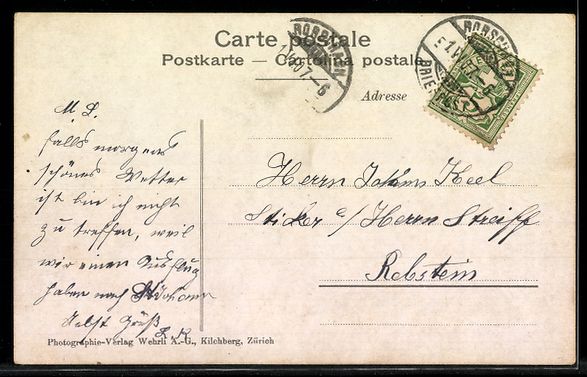 Carte postale
Postkarte — Cartolina postale
Adresse
RORSCHACH
RORSCHACH
BRIEF
M. L.
falls morgens
schönes Wetter
ist bin ich nicht
zu treffen, weil
wir einen Ausflug
haben nach
Gruß
Herrn Johann Keel
Sticker c/ Herrn Streiff
Rebstein
Photographie-Verlag Wehrli A.-G., Kilchberg, Zürich